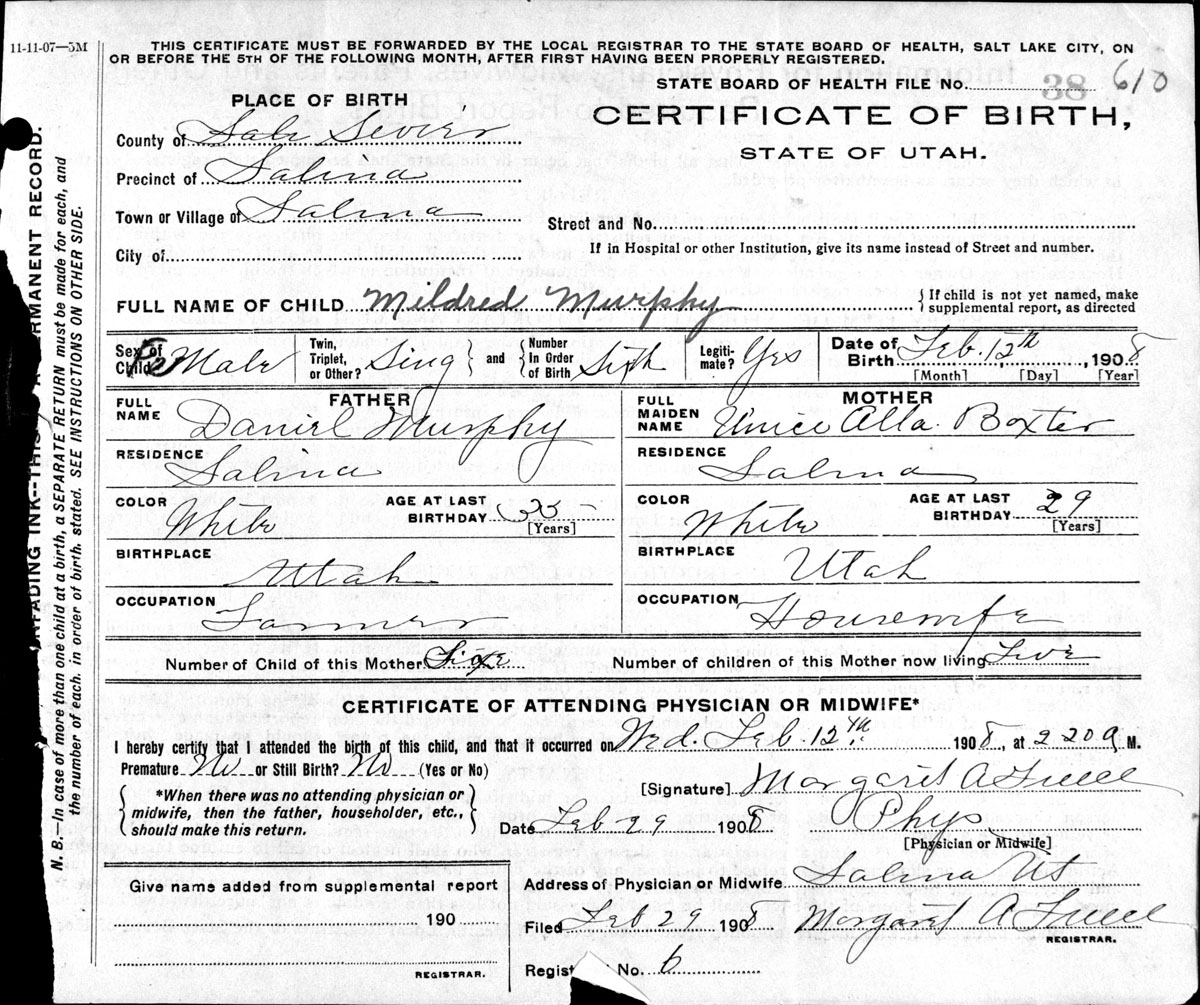 11-11-07—5M
THIS CERTIFICATE MUST BE FORWARDED BY THE LOCAL REGISTRAR TO THE STATE BOARD OF HEALTH, SALT LAKE CITY, ON
OR BEFORE THE 5TH OF THE FOLLOWING MONTH, AFTER FIRST HAVING BEEN PROPERLY REGISTERED.
STATE BOARD OF HEALTH FILE No. 38 610
PLACE OF BIRTH
CERTIFICATE OF BIRTH,
STATE OF UTAH.
County of Sevier
Precinct of Salina
Town or Village of Salina
Street and No.
City of
If in Hospital or other Institution, give its name instead of Street and number.
FULL NAME OF CHILD Mildred Murphy { If child is not yet named, make supplemental report, as directed
Sex of Child Male Twin, Triplet, or Other? Sing and Number In Order of Birth Sixth Legitimate? Yes Date of Birth Feb. 12th, 1908
[Month] [Day] [Year]
FATHER
FULL NAME Daniel Murphy
RESIDENCE Salina
COLOR White AGE AT LAST BIRTHDAY [Years]
BIRTHPLACE Utah
OCCUPATION Farmer
MOTHER
FULL MAIDEN NAME Unice Alla Boxter
RESIDENCE Salina
COLOR White AGE AT LAST BIRTHDAY 29 [Years]
BIRTHPLACE Utah
OCCUPATION Housewife
Number of Child of this Mother Six Number of children of this Mother now living
CERTIFICATE OF ATTENDING PHYSICIAN OR MIDWIFE*
I hereby certify that I attended the birth of this child, and that it occurred on Wed. Feb. 12th 1908, at 2 20 a M.
Premature No or Still Birth? No (Yes or No)
[Signature] Margaret A
{ *When there was no attending physician or midwife, then the father, householder, etc., should make this return.
Date Feb 29 1908 Phys
[Physician or Midwife]
Give name added from supplemental report
190
REGISTRAR.
Address of Physician or Midwife Salina Ut
Filed Feb 29 1908 Margaret A
REGISTRAR.
Regist No. 6
FADING INK--THIS A PERMANENT RECORD.
N. B.—In case of more than one child at a birth, a SEPARATE RETURN must be made for each, and
the number of each, in order of birth, stated. SEE INSTRUCTIONS ON OTHER SIDE.